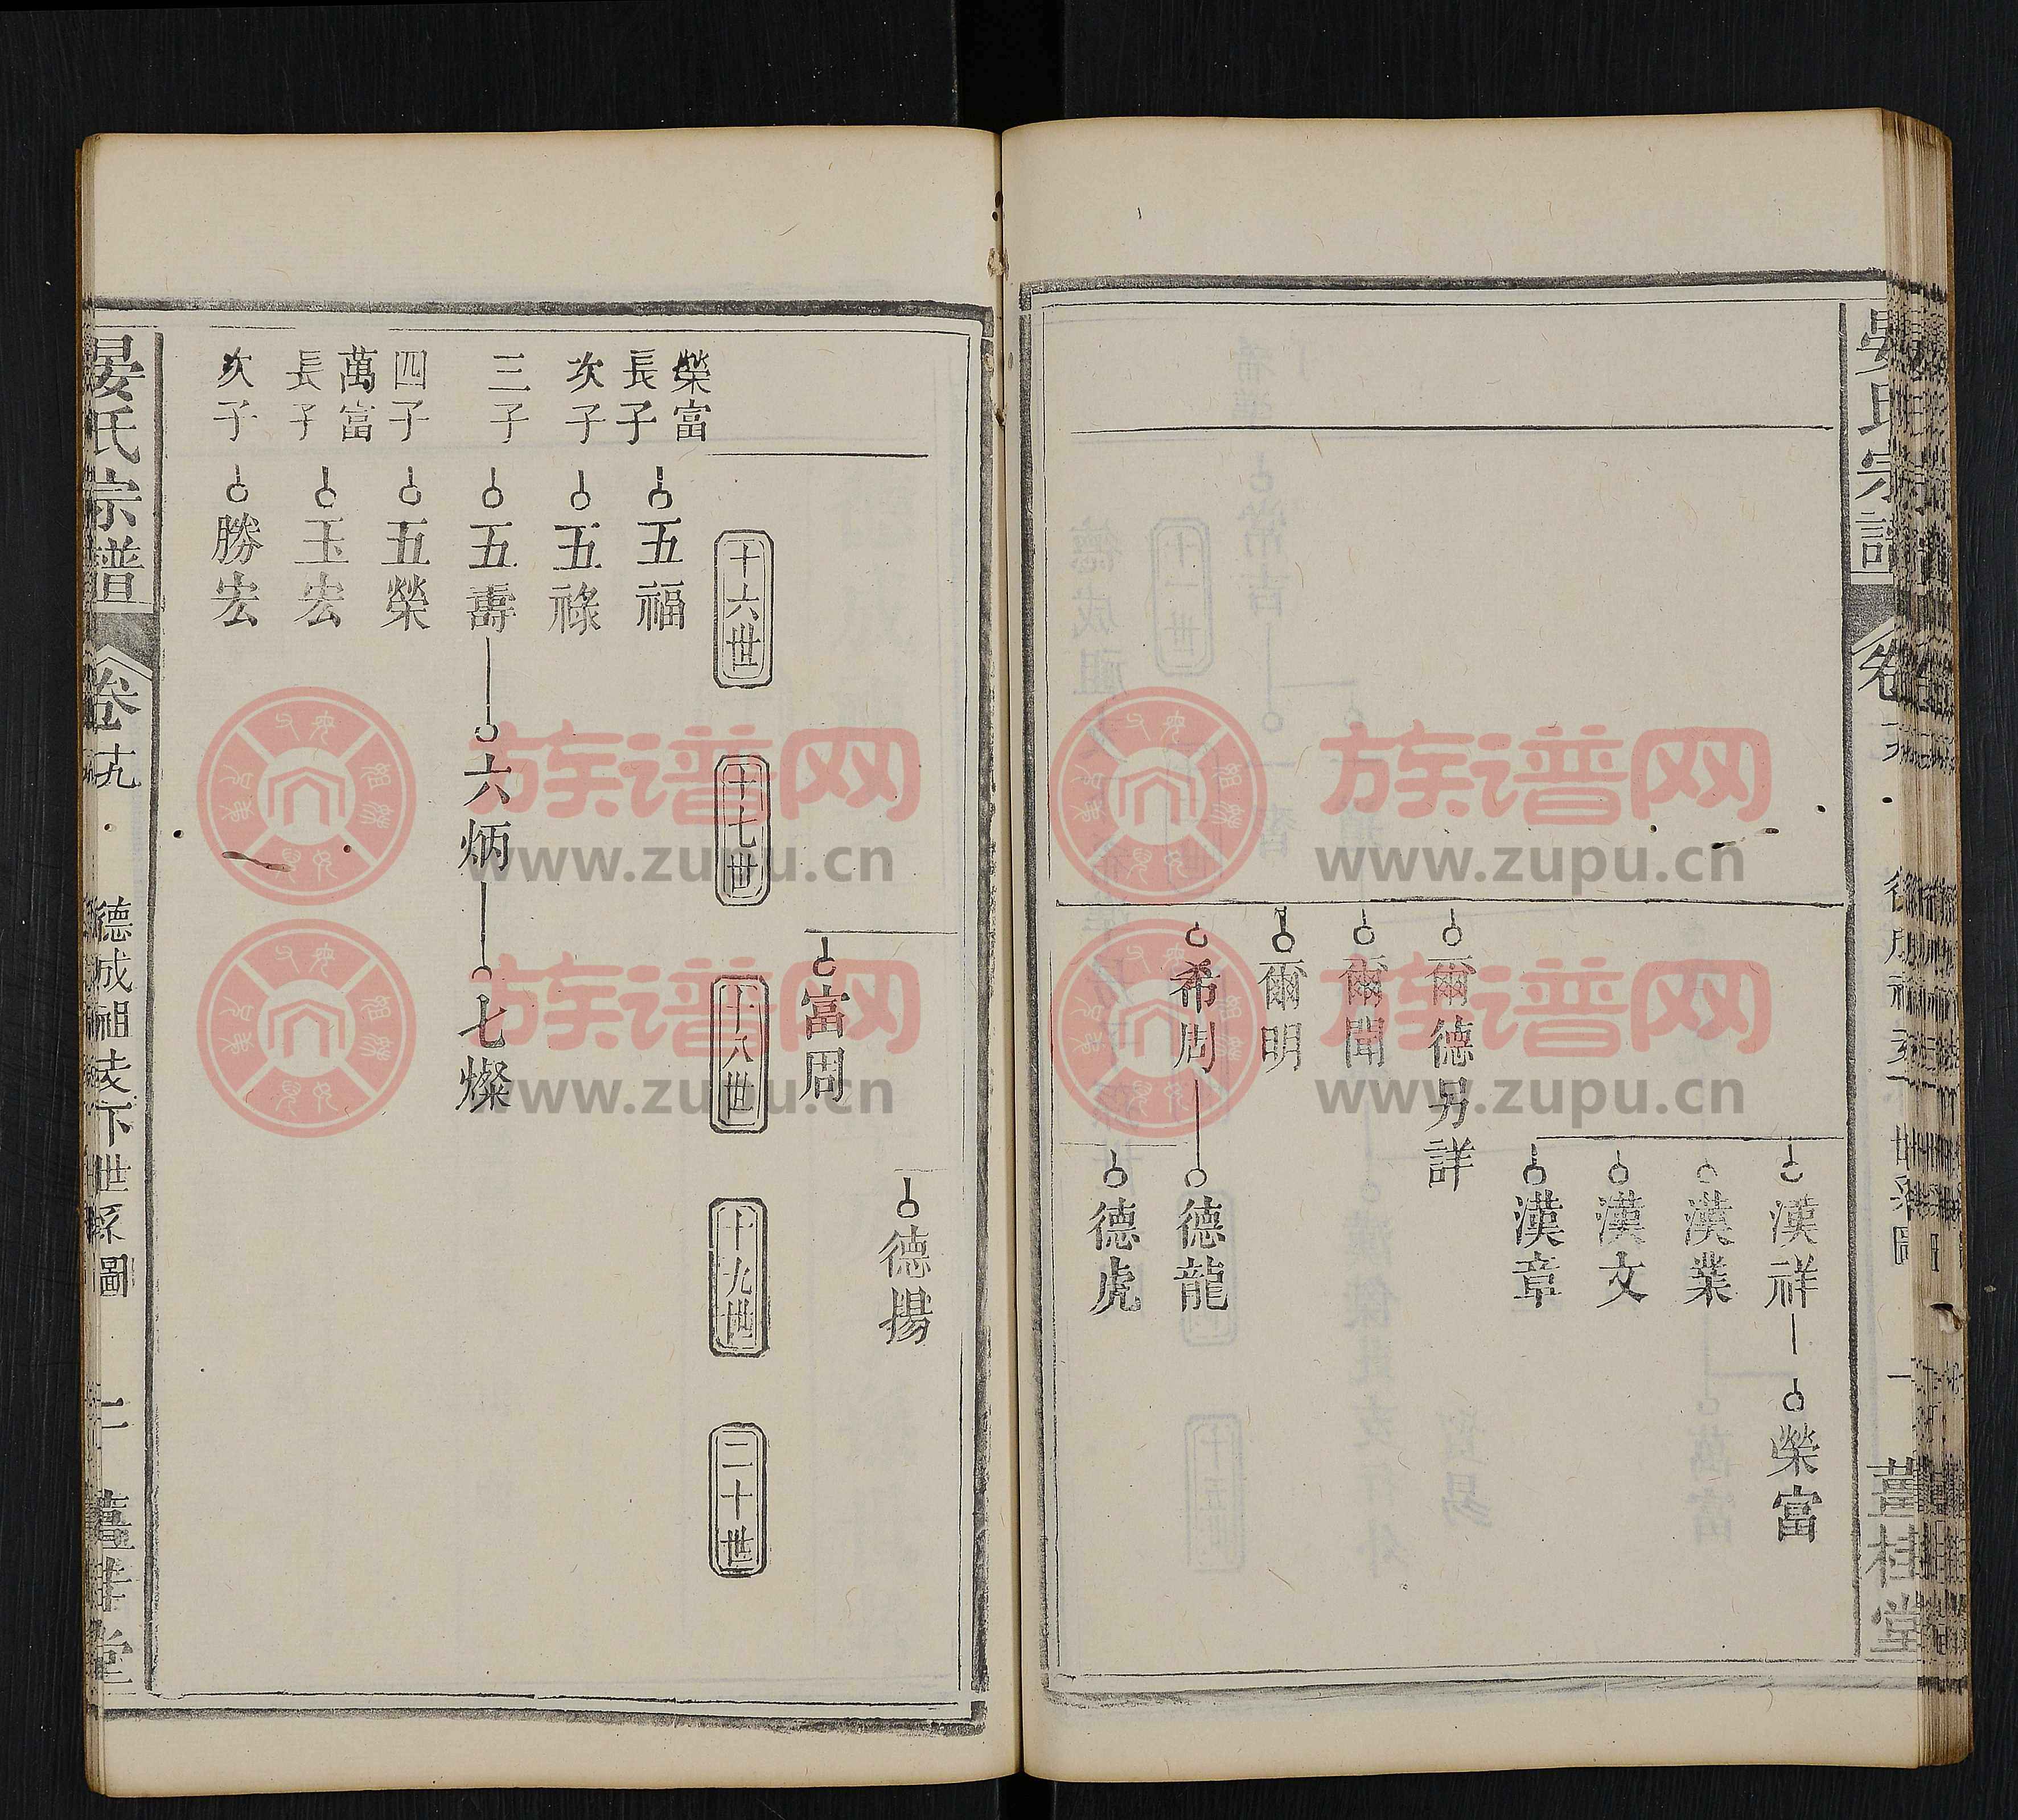 晏氏宗譜
薑桂堂
漢祥
榮富
漢業
漢文
漢章
爾德另詳
爾聞
爾明
希周
德龍
德虎
德揚
富周
十六世
十七世
十八世
十九世
二十世
榮富
長子
五福
次子
五祿
三子
五壽
六炳
七燦
四子
五榮
萬富
長子
玉宏
次子
勝宏
晏氏宗譜
卷
德成祖支下世系圖
二
堂
族谱网
www.zupu.cn
族谱网
www.zupu.cn
族谱网
www.zupu.cn
族谱网
www.zupu.cn